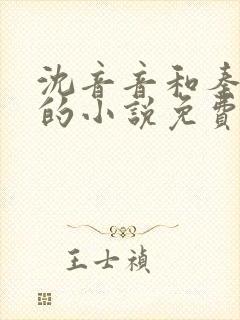 沈音音和秦
的小說免費
王士禎